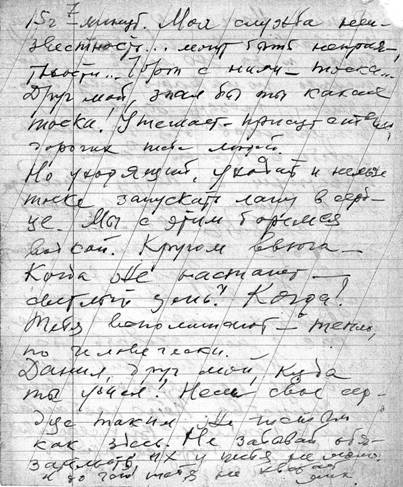 15 г 7 минут. Моя служба неи-
звестность... могут быть неприя-
тности... Чорт с ними – тоска...
Друг мой, знал бы ты какая
тоска. Утешает – присутствие
дорогих тебе людей.
Но уходящий, уходят и нельзя
тоске запускать лапу в серд-
це. Мы с этим боремся
водкой. Кругом вьюга –
Когда же настанет –
светлый день? Когда!
Тебя вспоминают – тепло,
по человечески.
Данил, друг мой, куда
ты ушел! Неси свое сер-
дце таким же чистым
как здесь. Не забывай обя-
зательств, их у тебя не мало,
а то тебя не хватает